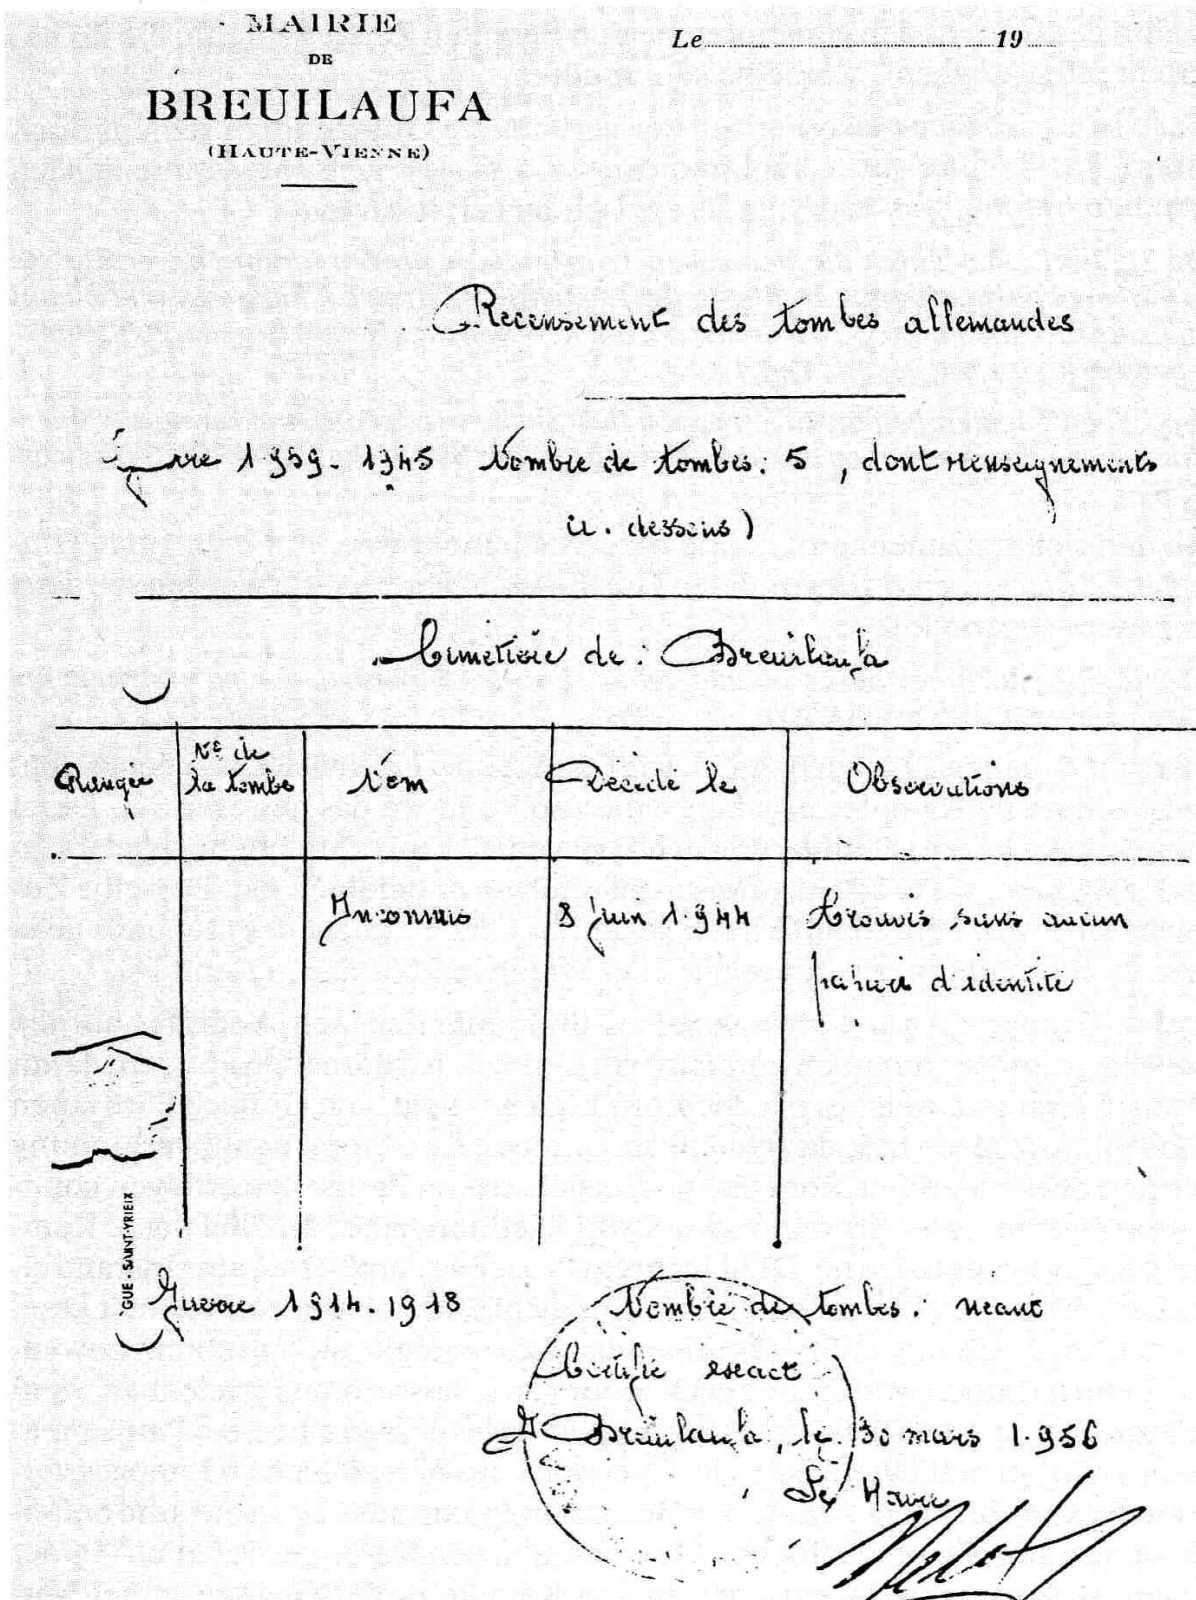 MAIRIE
DE
BREUILAUFA
(HAUTE-VIENNE)
Le 19
Recensement des tombes allemandes
Guerre 1939-1945 Nombre de tombes: 5, dont renseignements
ci-dessous)
Cimetière de: Breuilaufa
Rangée
N° de
la tombe
Nom
Décédé le
Observations
Inconnus
8 juin 1.944
trouvés sans aucun
papier d'identité
GUE - SAINT-YRIEIX
Guerre 1914-1918
Nombre de tombes: néant
Certifié exact
A Breuilaufa, le 30 mars 1.956
Le Maire